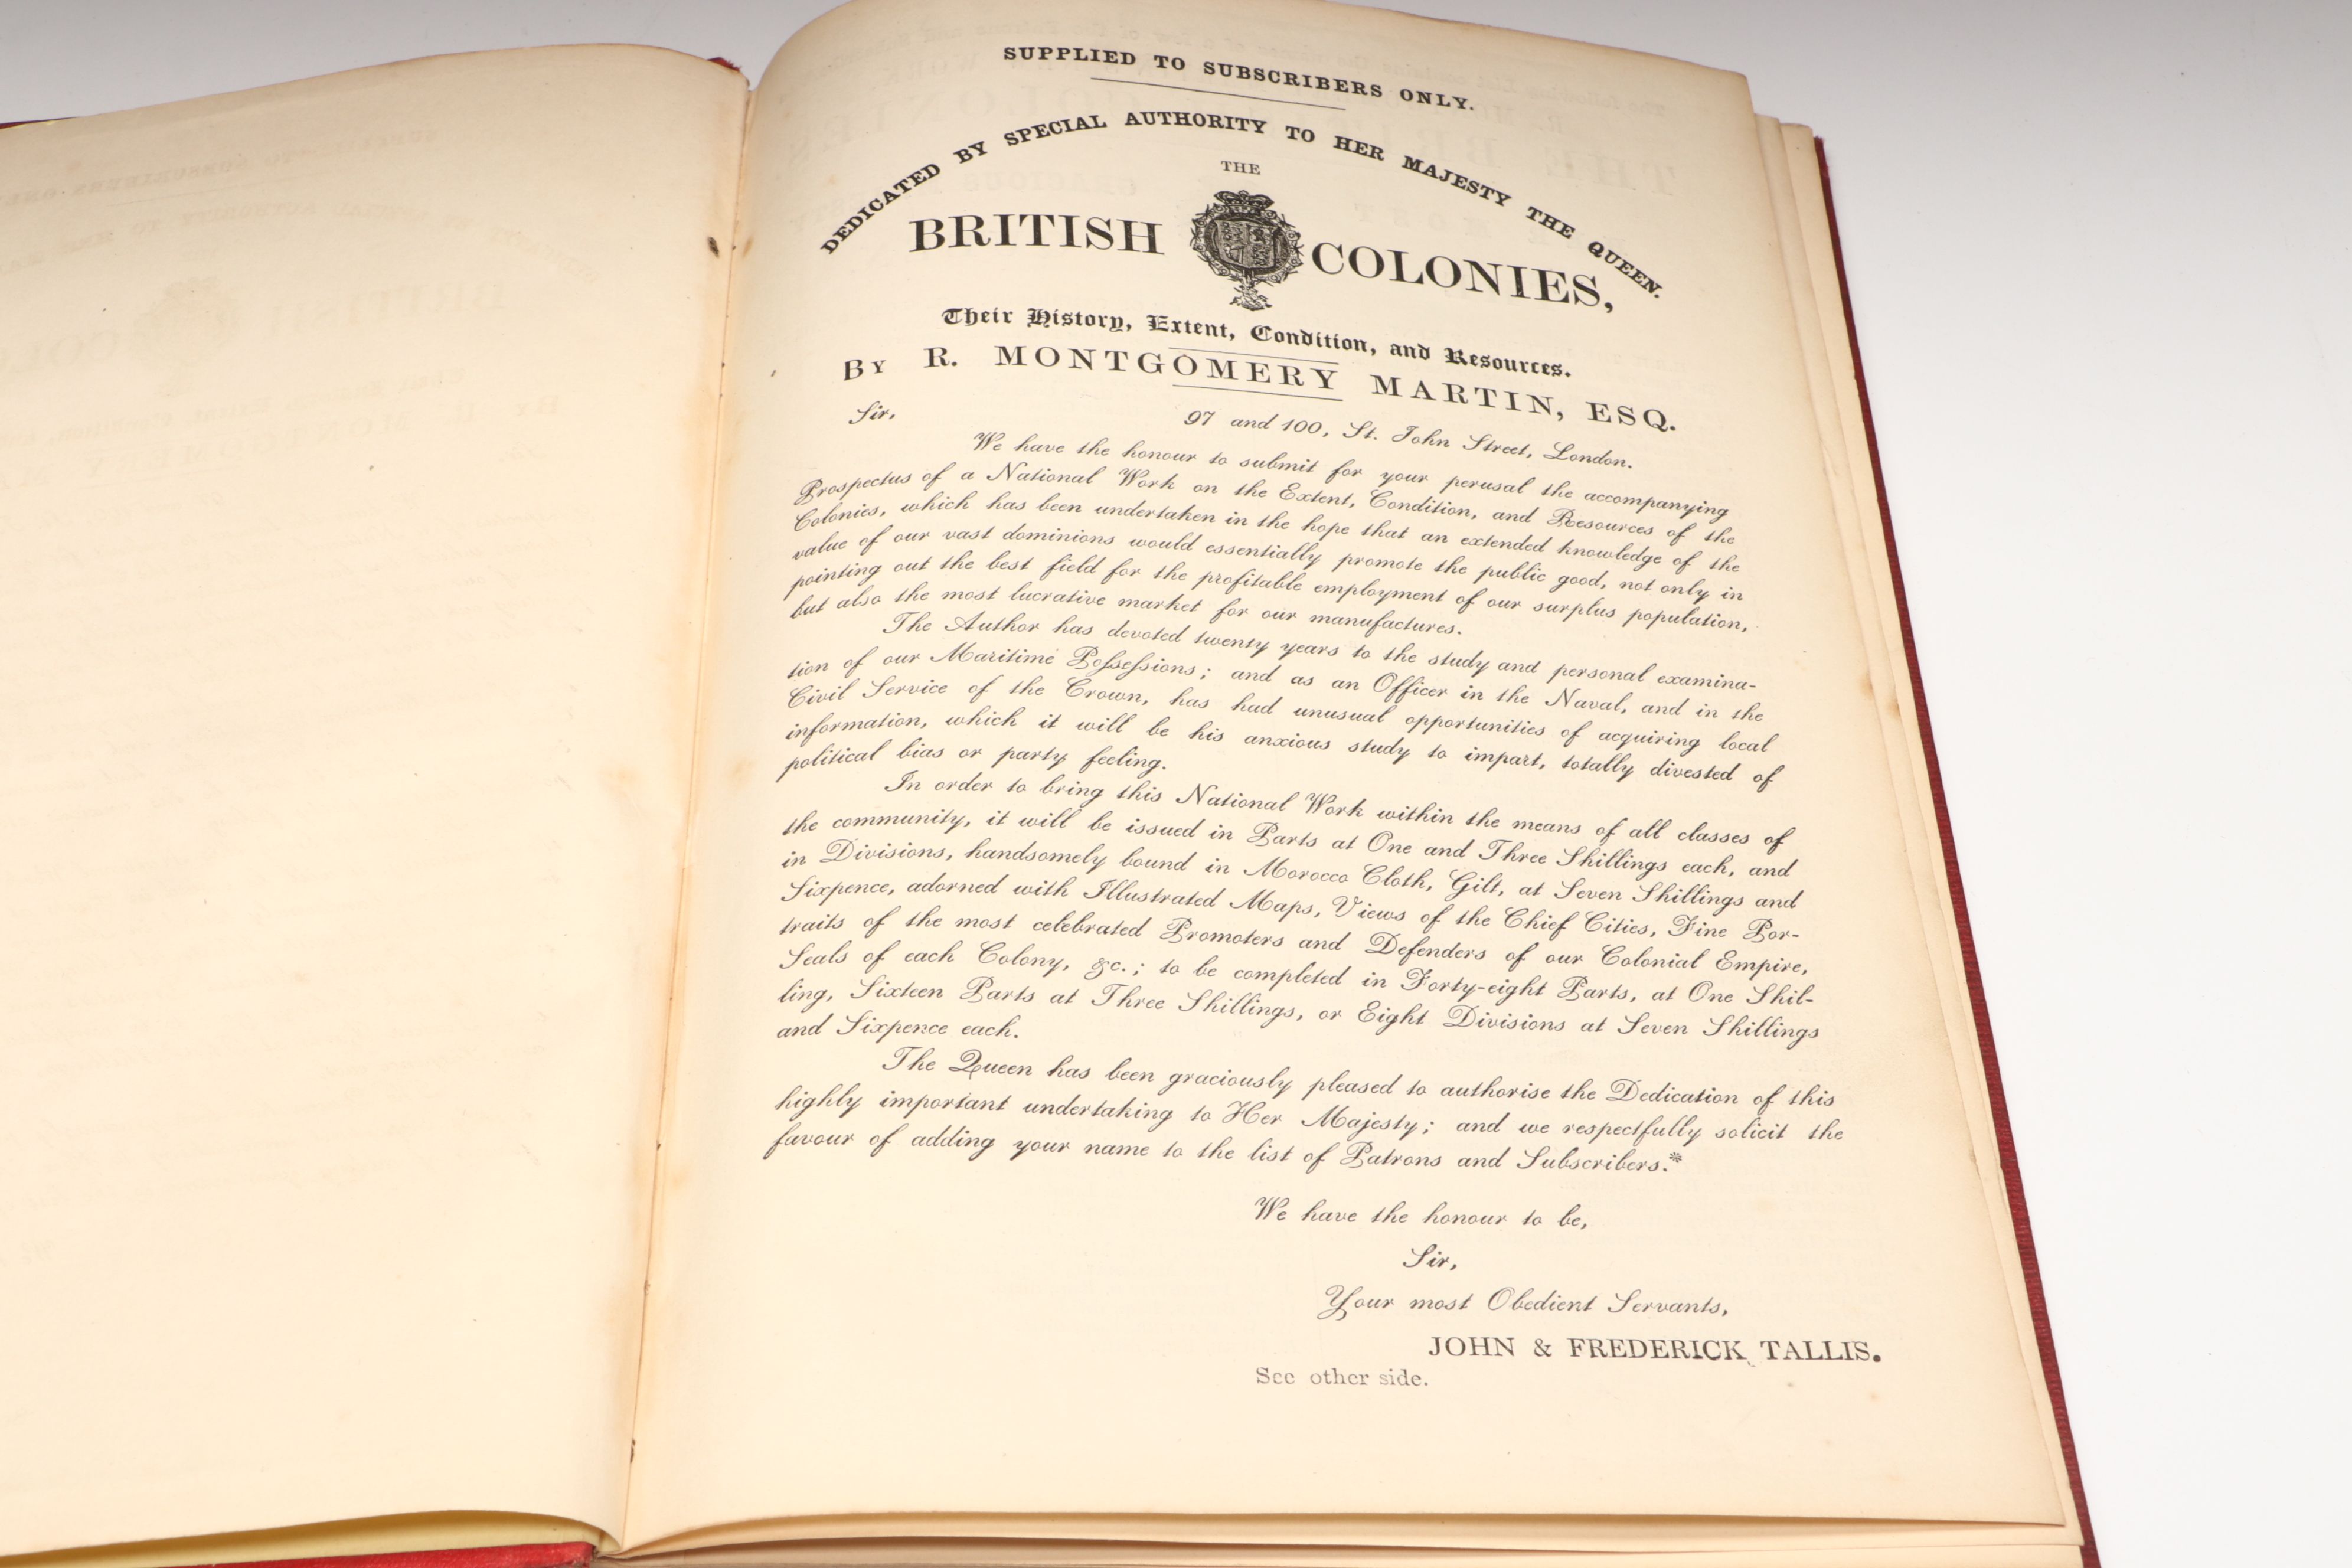 SUPPLIED TO SUBSCRIBERS ONLY.
DEDICATED BY SPECIAL AUTHORITY TO HER MAJESTY THE QUEEN.
THE
BRITISH COLONIES,
Their History, Extent, Condition, and Resources.
BY R. MONTGOMERY MARTIN, ESQ.
97 and 100, St. John Street, London.
Sir,
We have the honour to submit for your perusal the accompanying
Prospectus of a National Work on the Extent, Condition, and Resources of the
Colonies, which has been undertaken in the hope that an extended knowledge of the
value of our vast dominions would essentially promote the public good, not only in
pointing out the best field for the profitable employment of our surplus population,
but also the most lucrative market for our manufactures.
The Author has devoted twenty years to the study and personal examina-
tion of our Maritime Possessions; and as an Officer in the Naval, and in the
Civil Service of the Crown, has had unusual opportunities of acquiring local
information, which it will be his anxious study to impart, totally divested of
political bias or party feeling.
In order to bring this National Work within the means of all classes of
the community, it will be issued in Parts at One and Three Shillings each, and
in Divisions, handsomely bound in Morocco Cloth, Gilt, at Seven Shillings and
Sixpence, adorned with Illustrated Maps, Views of the Chief Cities, Fine Por-
traits of the most celebrated Promoters and Defenders of our Colonial Empire,
Seals of each Colony, &c.; to be completed in Forty-eight Parts, at One Shil-
ling, Sixteen Parts at Three Shillings, or Eight Divisions at Seven Shillings
and Sixpence each.
The Queen has been graciously pleased to authorise the Dedication of this
highly important undertaking to Her Majesty; and we respectfully solicit the
favour of adding your name to the list of Patrons and Subscribers.*
We have the honour to be,
Sir,
Your most Obedient Servants,
JOHN & FREDERICK TALLIS.
See other side.